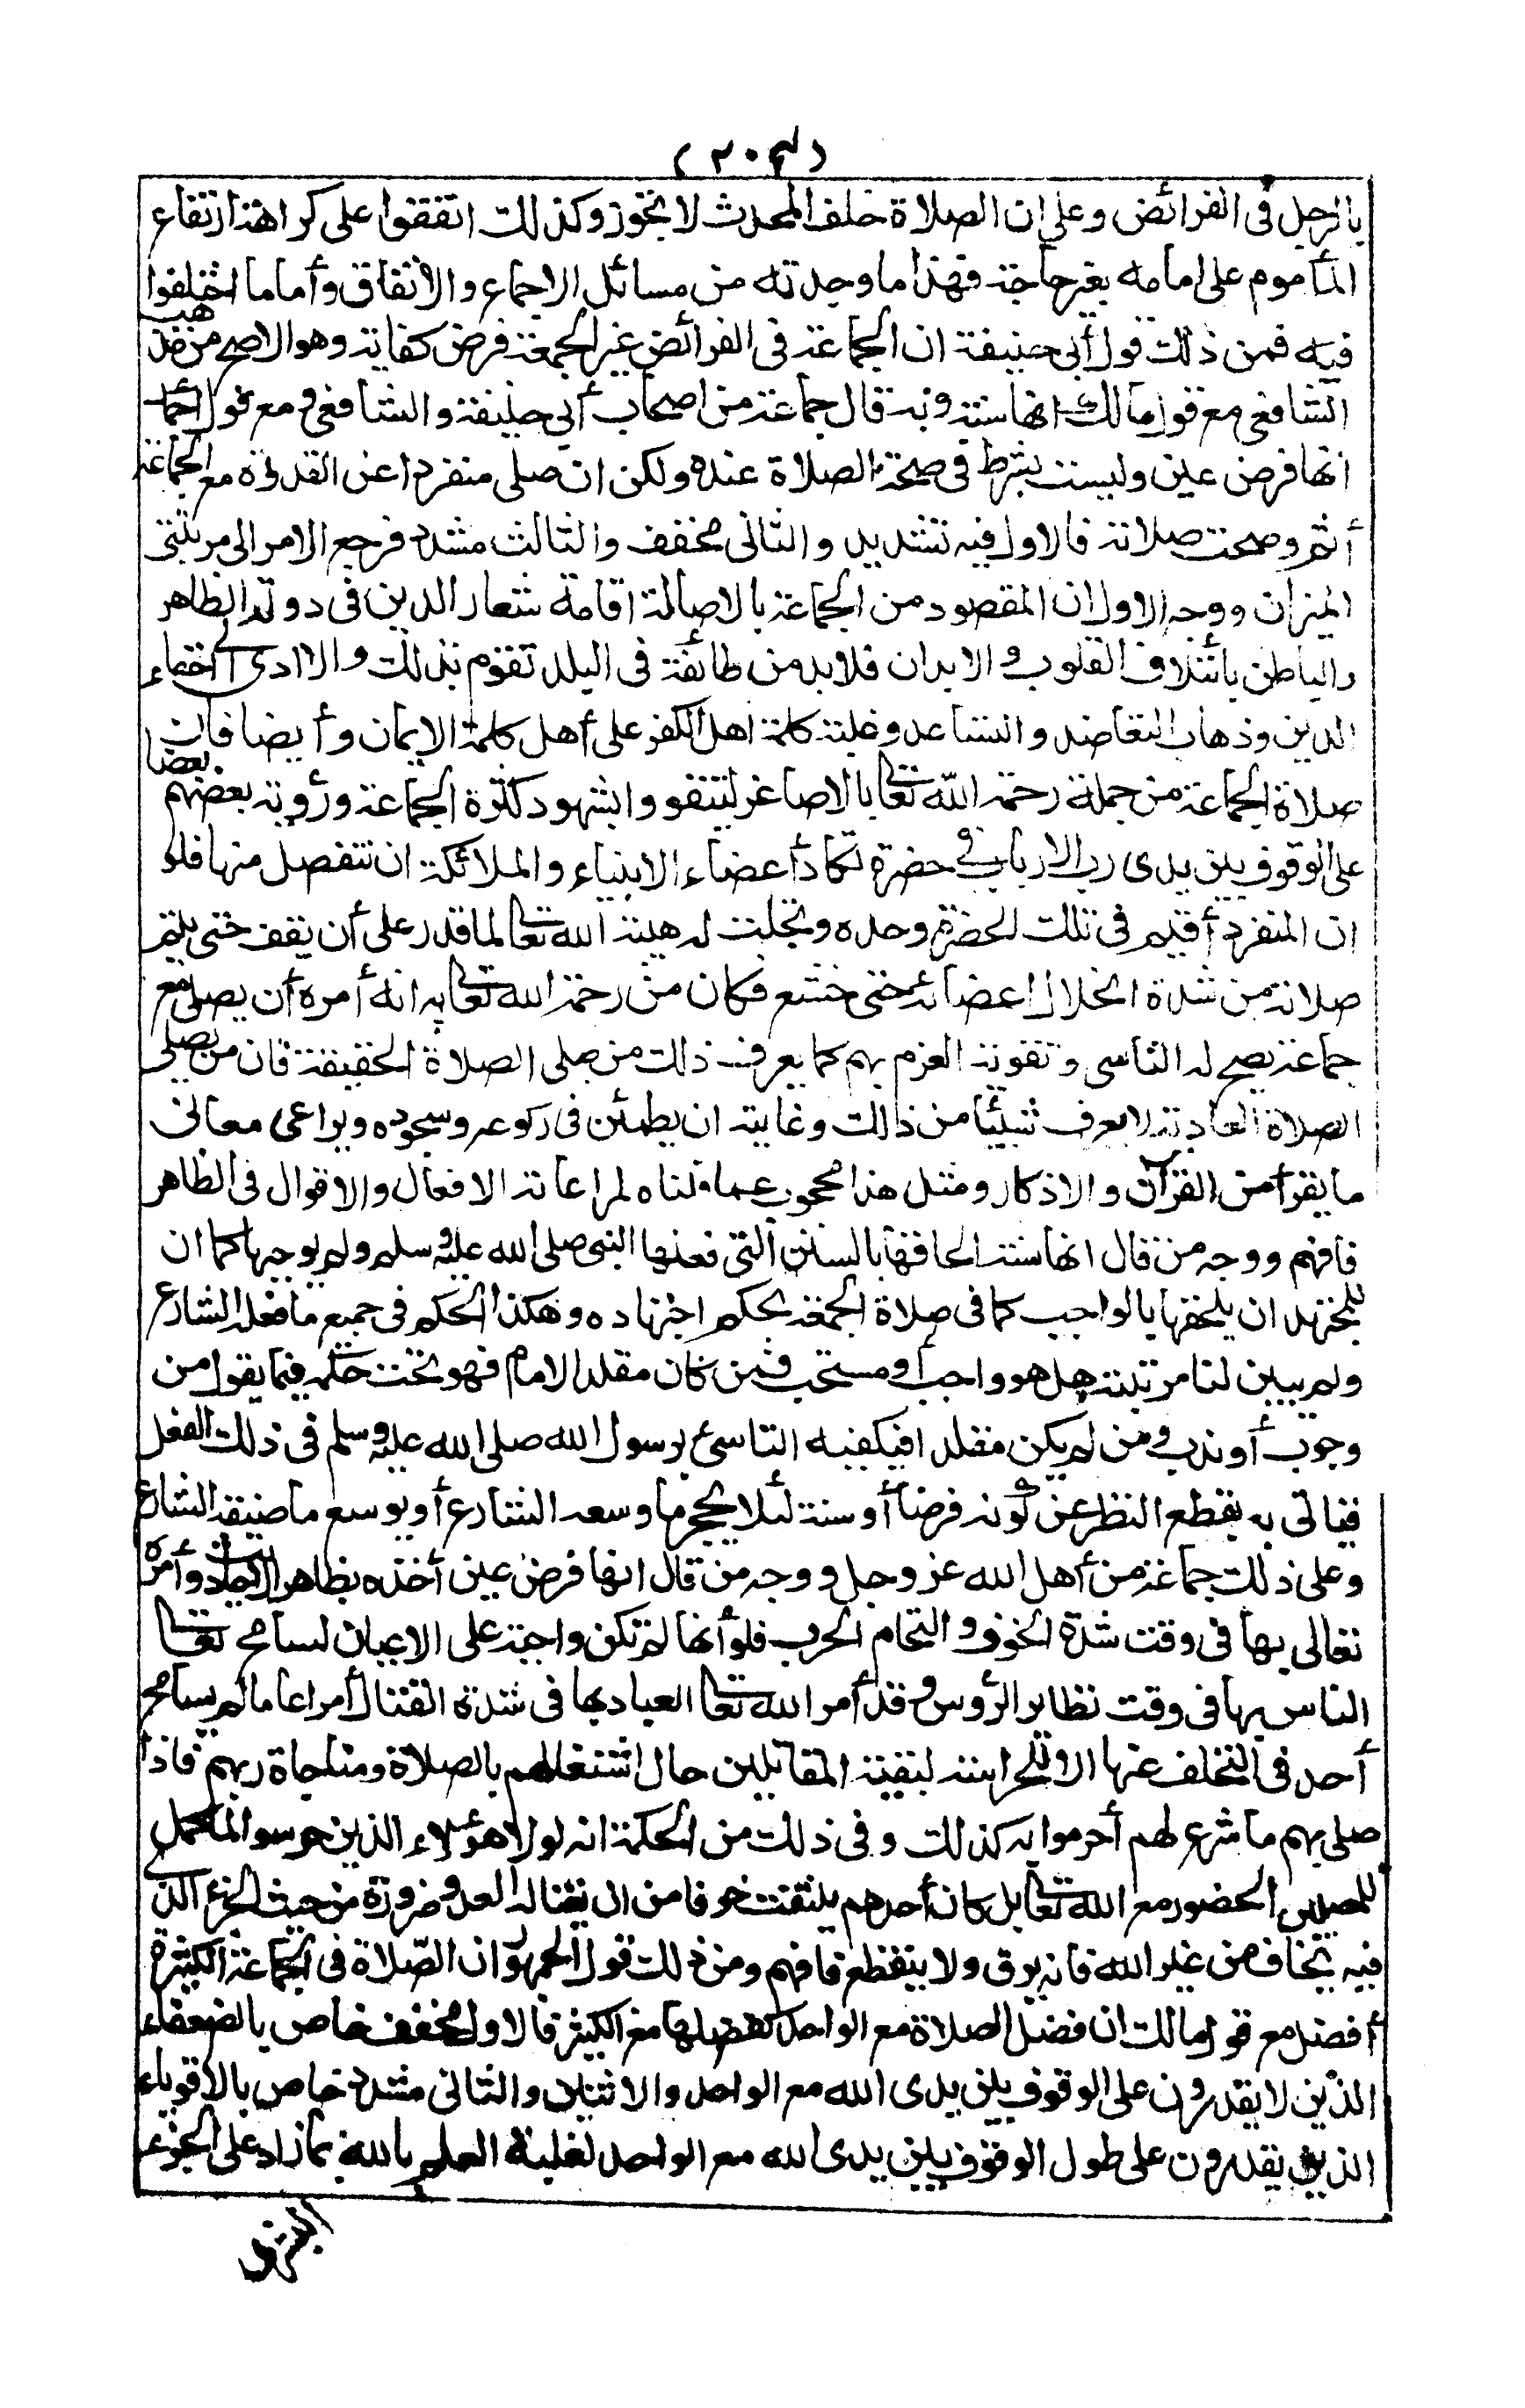 (٢٠٤)
بالرجل فى الفرائض وعلى ان الصلاة خلف المحدث لا تجوز وكذلك اتفقوا على كراهة ارتفاع
المأموم على امامه بغير حاجة فهذا ما وجدته من مسائل الاجماع والاتفاق وأما ما اختلفوا
فيه فمن ذلك قول أبى حنيفة ان الجماعة فى الفرائض غير الجمعة فرض كفاية وهو الاصح من مذهب
الشافعى مع قول مالك انها سنة وبه قال جماعة من اصحاب أبى حنيفة والشافعى و مع قول احمد
انها فرض عين وليست بشرط فى صحة الصلاة عنده ولكن ان صلى منفردا عن القدرة مع الجماعة
أثم وصحت صلاته فالاول فيه تشديد والثانى مخفف والثالث مشدد فرجع الامر الى مرتبتى
الميزان ووجه الاول ان المقصود من الجماعة بالاصالة اقامة شعار الدين فى دولته الظاهر
والباطن بائتلاف القلوب والابدان فلا بد من طائفة فى البلد تقوم بذلك والا ادى الى اخفاء
الدين وذهاب التعاضد والتساعد وغلبة كلمة اهل الكفر على أهل كلمة الايمان وأيضا فان
صلاة الجماعة من جملة رحمة الله تعالى بالاصاغر ليتقووا بشهود كثرة الجماعة ورؤية بعضهم بعضا
على الوقوف بين يدى رب الارباب فى حضرة تكاد أعضاء الانبياء والملائكة ان تتفصل منها فلو
ان المنفرد أقيم فى تلك الحضرة وحده وتجلت له هيبة الله تعالى لما قدر على أن يقف حتى يتم
صلاته من شدة انحلال اعضائه حتى خشع فكان من رحمة الله تعالى به انه أمره أن يصلى مع
جماعة يصح له التاسى وتقوية العزم بهم كما يعرف ذلك من صلى الصلاة الحقيقة فان من يصلى
الصلاة العادية لا يعرف شيئا من ذلك وغايته ان يطمئن فى ركوعه وسجوده ويراعى معانى
ما يقرأ من القرآن والاذكار ومثل هذا محجوب عما قلناه لمراعاته الافعال والاقوال فى الظاهر
فافهم ووجه من قال انها سنة الحاقها بالسنن التى فعلها النبى صلى الله عليه وسلم ولم يوجبها كما ان
للمجتهد ان يلحقها بالواجب كما فى صلاة الجمعة بحكم اجتهاده وهكذا الحكم فى جميع ما فعله الشارع
ولم يبين لنا مرتبته هل هو واجب أو مستحب فمن كان مقلد الامام فهو تحت حكمه فيما يقول من
وجوب أو ندب ومن لم يكن مقلدا فيكفيه التاسى برسول الله صلى الله عليه وسلم فى ذلك الفعل
فياتى به بقطع النظر عن كونه فرضا أو سنة لئلا يحجر ما وسعه الشارع أو يوسع ما ضيقه الشارع
وعلى ذلك جماعة من أهل الله عز وجل ووجه من قال انها فرض عين أخذه بظاهر وأمره
تعالى بها فى وقت شدة الخوف والتحام الحرب فلو أنها لم تكن واجبة على الاعيان لسامح تعالى
الناس بها فى وقت تطاير الرؤس وقد أمر الله تعالى العباد بها فى شدة القتال أمرا عاما لم يسامح
أحد فى التخلف عنها الا للحراسة لبقية المقاتلين حال اشتغالهم بالصلاة ومناجاة ربهم فاذا
صلى بهم ما شرع لهم أحرموا به كذلك وفى ذلك من الحكمة انه لولا هؤلاء الذين حرسوا لما كمل
للمصلين الحضور مع الله تعالى بل كان أحدهم يلتفت خوفا من ان يغتاله العدو ضرورة من حيث الجزء الذى
فيه يخاف من غير الله فانه يرق ولا ينقطع فافهم ومن ذلك قول الجمهور ان الصلاة فى الجماعة الكثيرة
أفضل مع قول مالك ان فضل الصلاة مع الواحد كفضلها مع الكثير فالاول مخفف خاص بالضعفاء
الذين لا يقدرون على الوقوف بين يدى الله مع الواحد والاثنين والثانى مشدد خاص بالاقوياء
الذين يقدرون على طول الوقوف بين يدى الله مع الواحد لغلبة العلم بالله بما زاد على الجزء
البشرى